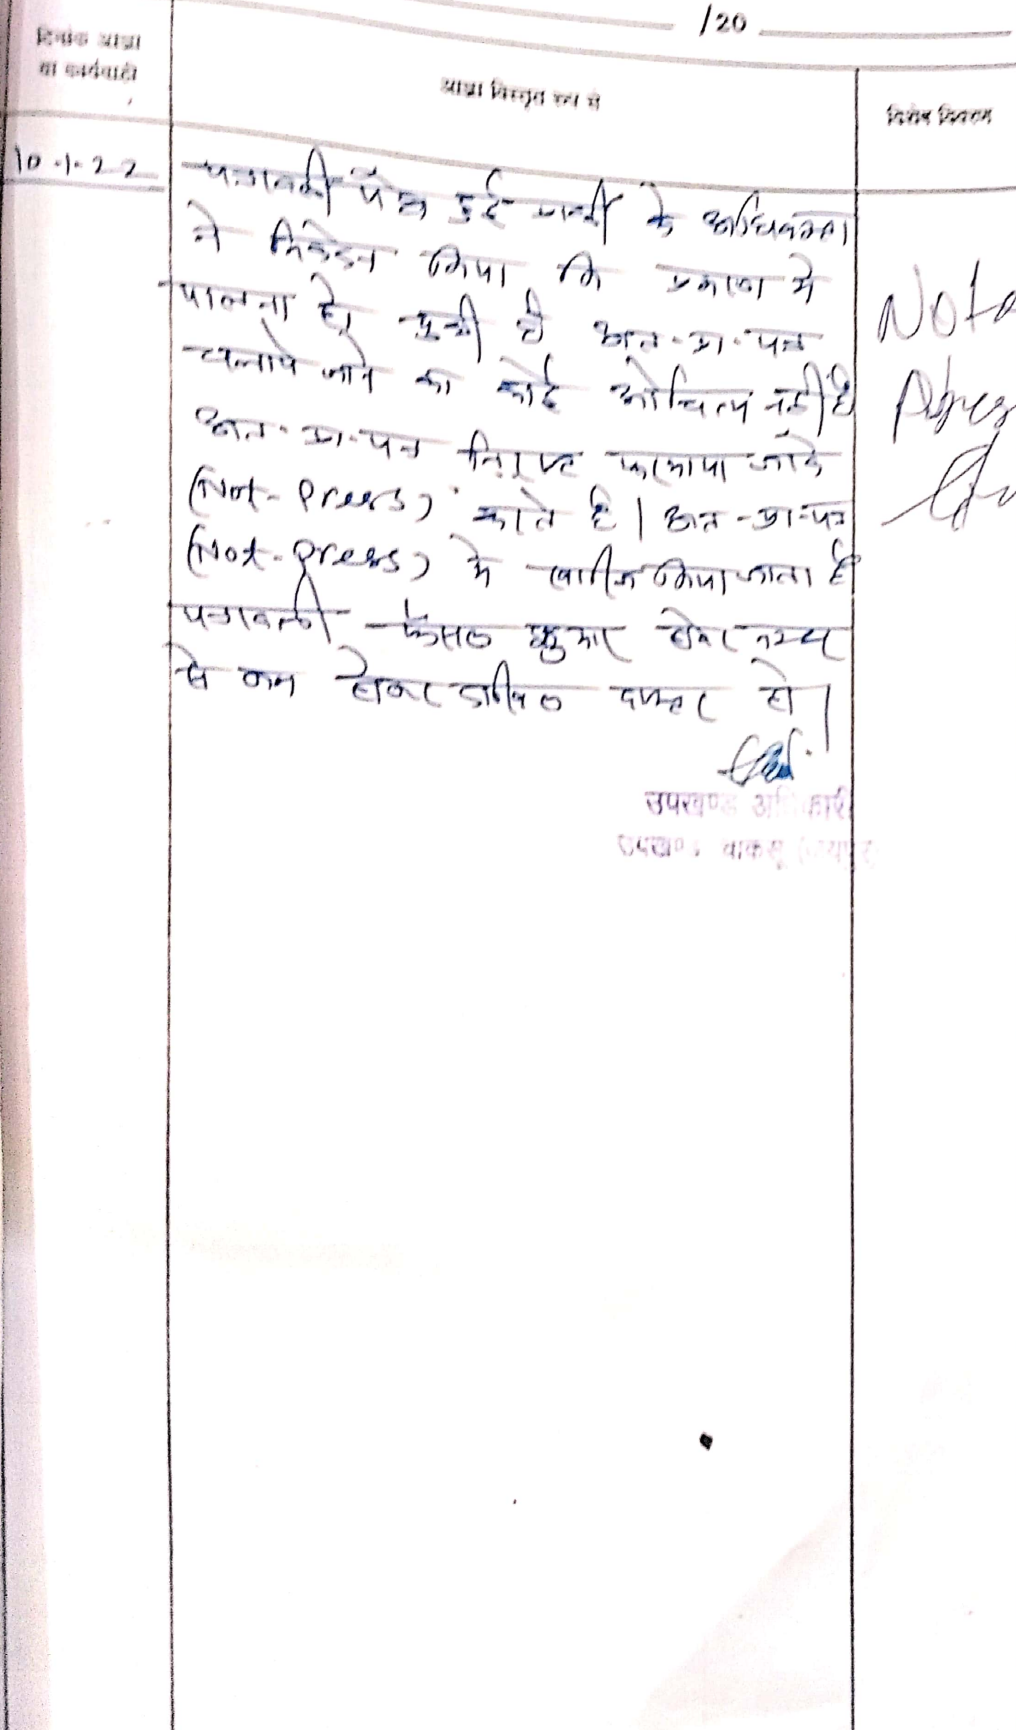 /20
दिनांक आज्ञा
या कार्यवाही
आज्ञा विस्तृत रूप में
विशेष विवरण
10.1.22
पत्रावली पेश हुई प्रार्थी के अधिवक्ता
ने निवेदन किया कि प्रकरण में
पालना हो चुकी है अतः प्रा. पत्र
चलाये जाने का कोई औचित्य नहीं है
अतः प्रा. पत्र फरमाया जावे
(Not-Press) करते है। अतः प्रा-पत्र
(Not-Press) में खारिज किया जाता है
पत्रावली फैसल शुमार होकर नम्बर
से कम होकर दाखिल दफ्तर हो।
उपखण्ड अधिकारी
उपखण्ड चाकसू (जयपुर